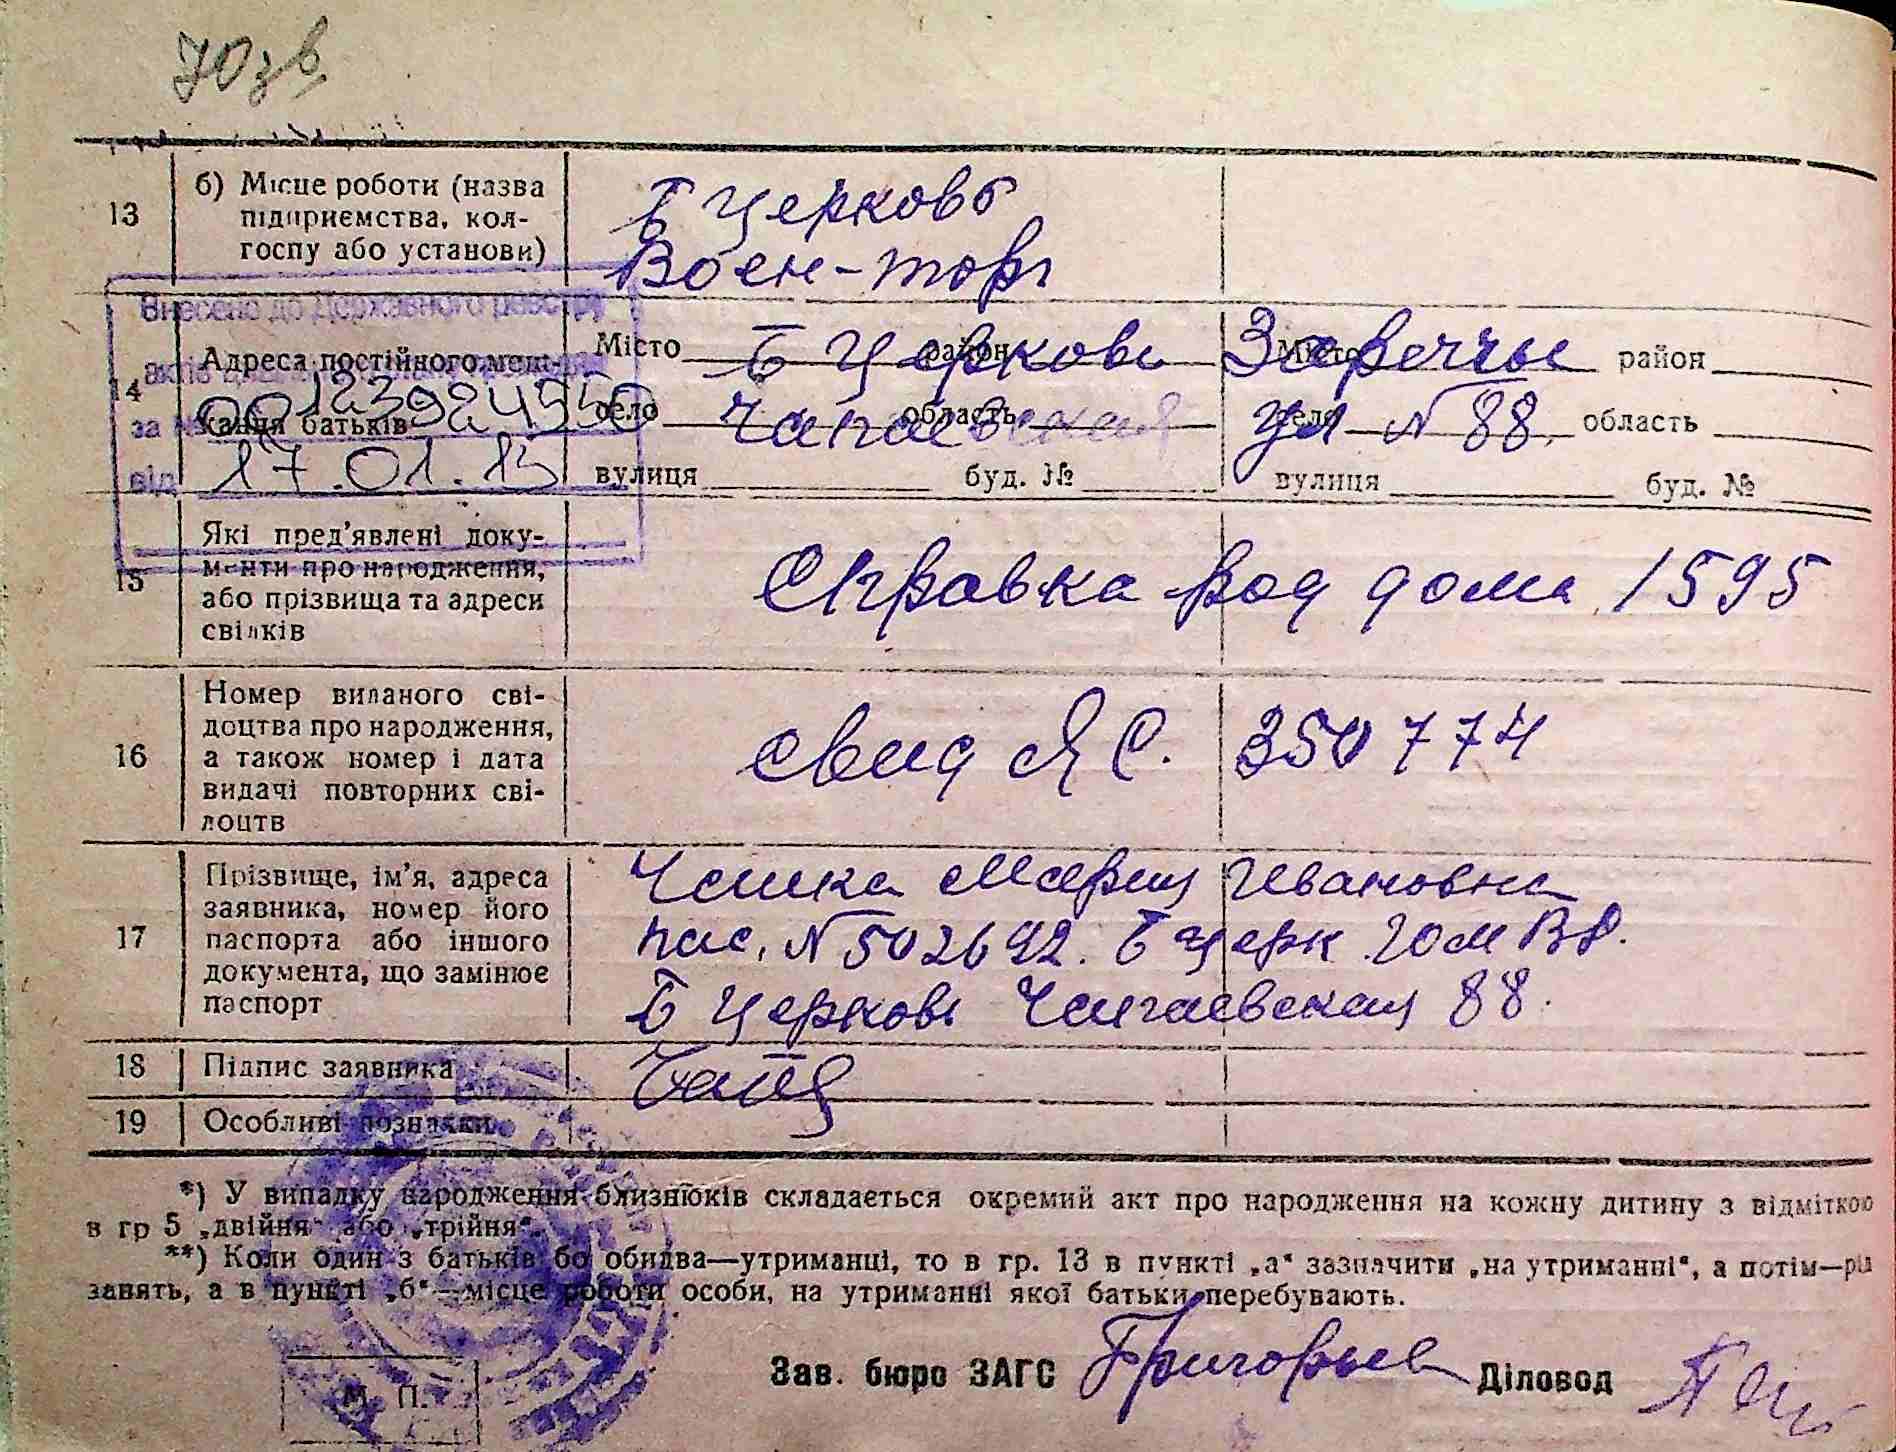 13 б) Місце роботи (назва
підприємства, кол-
госпу або установи)
Б Церковь
Воен-торг
Внесено до Державного реєстру
актів
за № 00123924550
від 17.01.13
14 Адреса постійного меш-
кання батьків
Місто Б Церковь район
село Чапаевская область
вулиця буд. №
Місто Заречье район
село ул № 88. область
вулиця буд. №
15 Які пред'явлені доку-
менти про народження,
або прізвища та адреси
свідків
Справка род дома 1595
16 Номер виданого сві-
доцтва про народження,
а також номер і дата
видачі повторних сві-
доцтв
свид ЯС. 350774
17 Прізвище, ім'я, адреса
заявника, номер його
паспорта або іншого
документа, що замінює
паспорт
Мария Ивановна
пас. № 502692. Б церк
Б Церковь Чапаевская 88.
18 Підпис заявника
19 Особливі познаки
*) У випадку народження близнюків складається окремий акт про народження на кожну дитину з відміткою
в гр 5 „двійня“ або „трійня“.
**) Коли один з батьків бо обидва—утриманці, то в гр. 13 в пункті „а“ зазначити „на утриманні“, а потім—рід
занять, а в пункті „б“—місце роботи особи, на утриманні якої батьки перебувають.
Зав. бюро ЗАГС Григорьев Діловод
М. П.